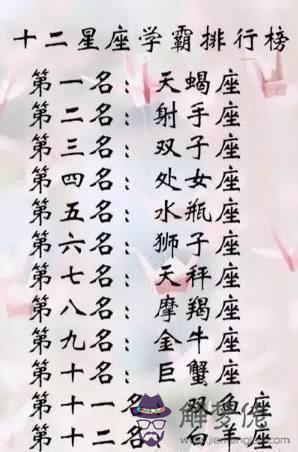 十二星座学霸排行榜
第一名：天蝎座
第二名：射手座
第三名：双子座
第四名：处女座
第五名：水瓶座
第六名：狮子座
第七名：天秤座
第八名：摩羯座
第九名：金牛座
第十名：巨蟹座
第十一名：双鱼座
第十二名：白羊座
解夢佬